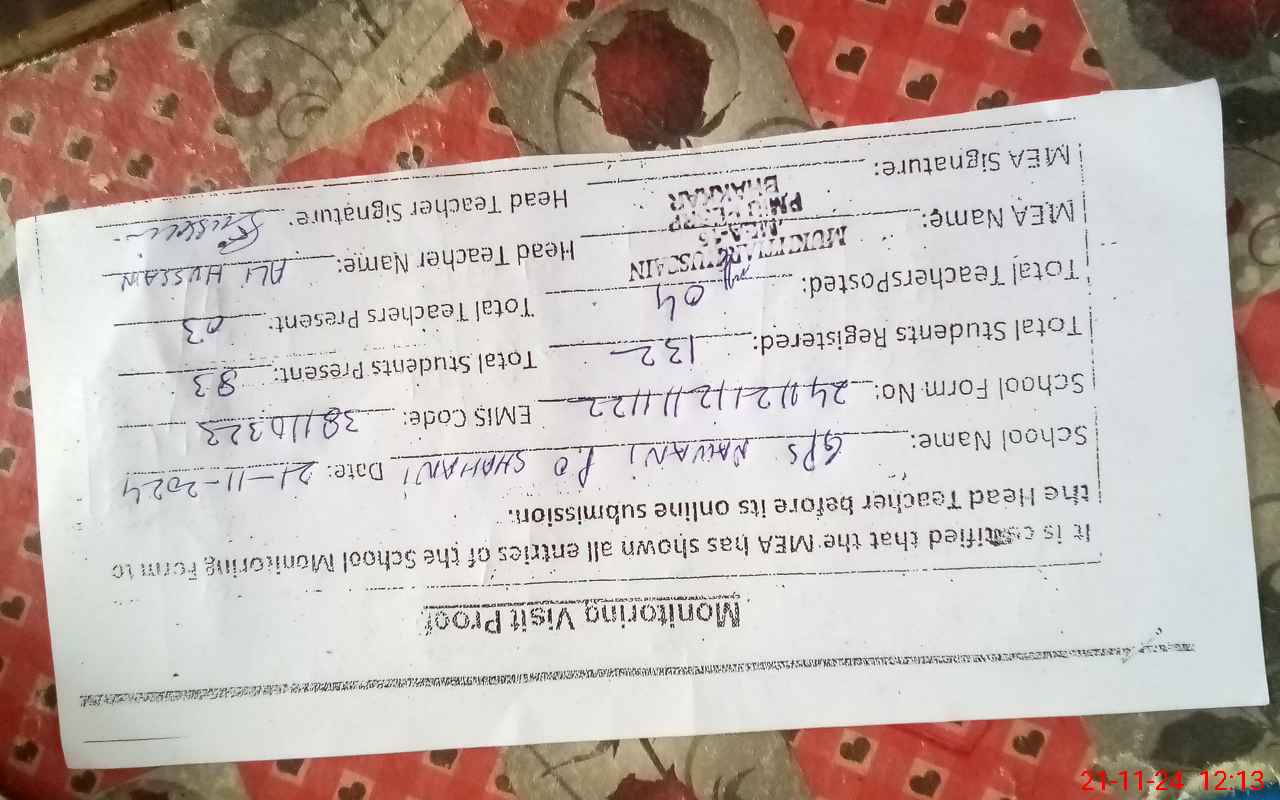 Monitoring Visit Proof
It is certified that the MEA has shown all entries of the School Monitoring Form to
the Head Teacher before its online submission.
School Name: GPS NAWANI P.O SHAHANI Date: 21-11-2024
School Form No: EMIS Code: 38110323
Total Students Registered: 132 Total Students Present: 83
Total TeachersPosted: 04 Total Teachers Present: 03
MEA Name: Head Teacher Name: ALI HUSSAIN
MEA Signature: Head Teacher Signature:
MUKHTIAR HUSSAIN
MEA-15
BHAKKAR
21-11-24 12:13